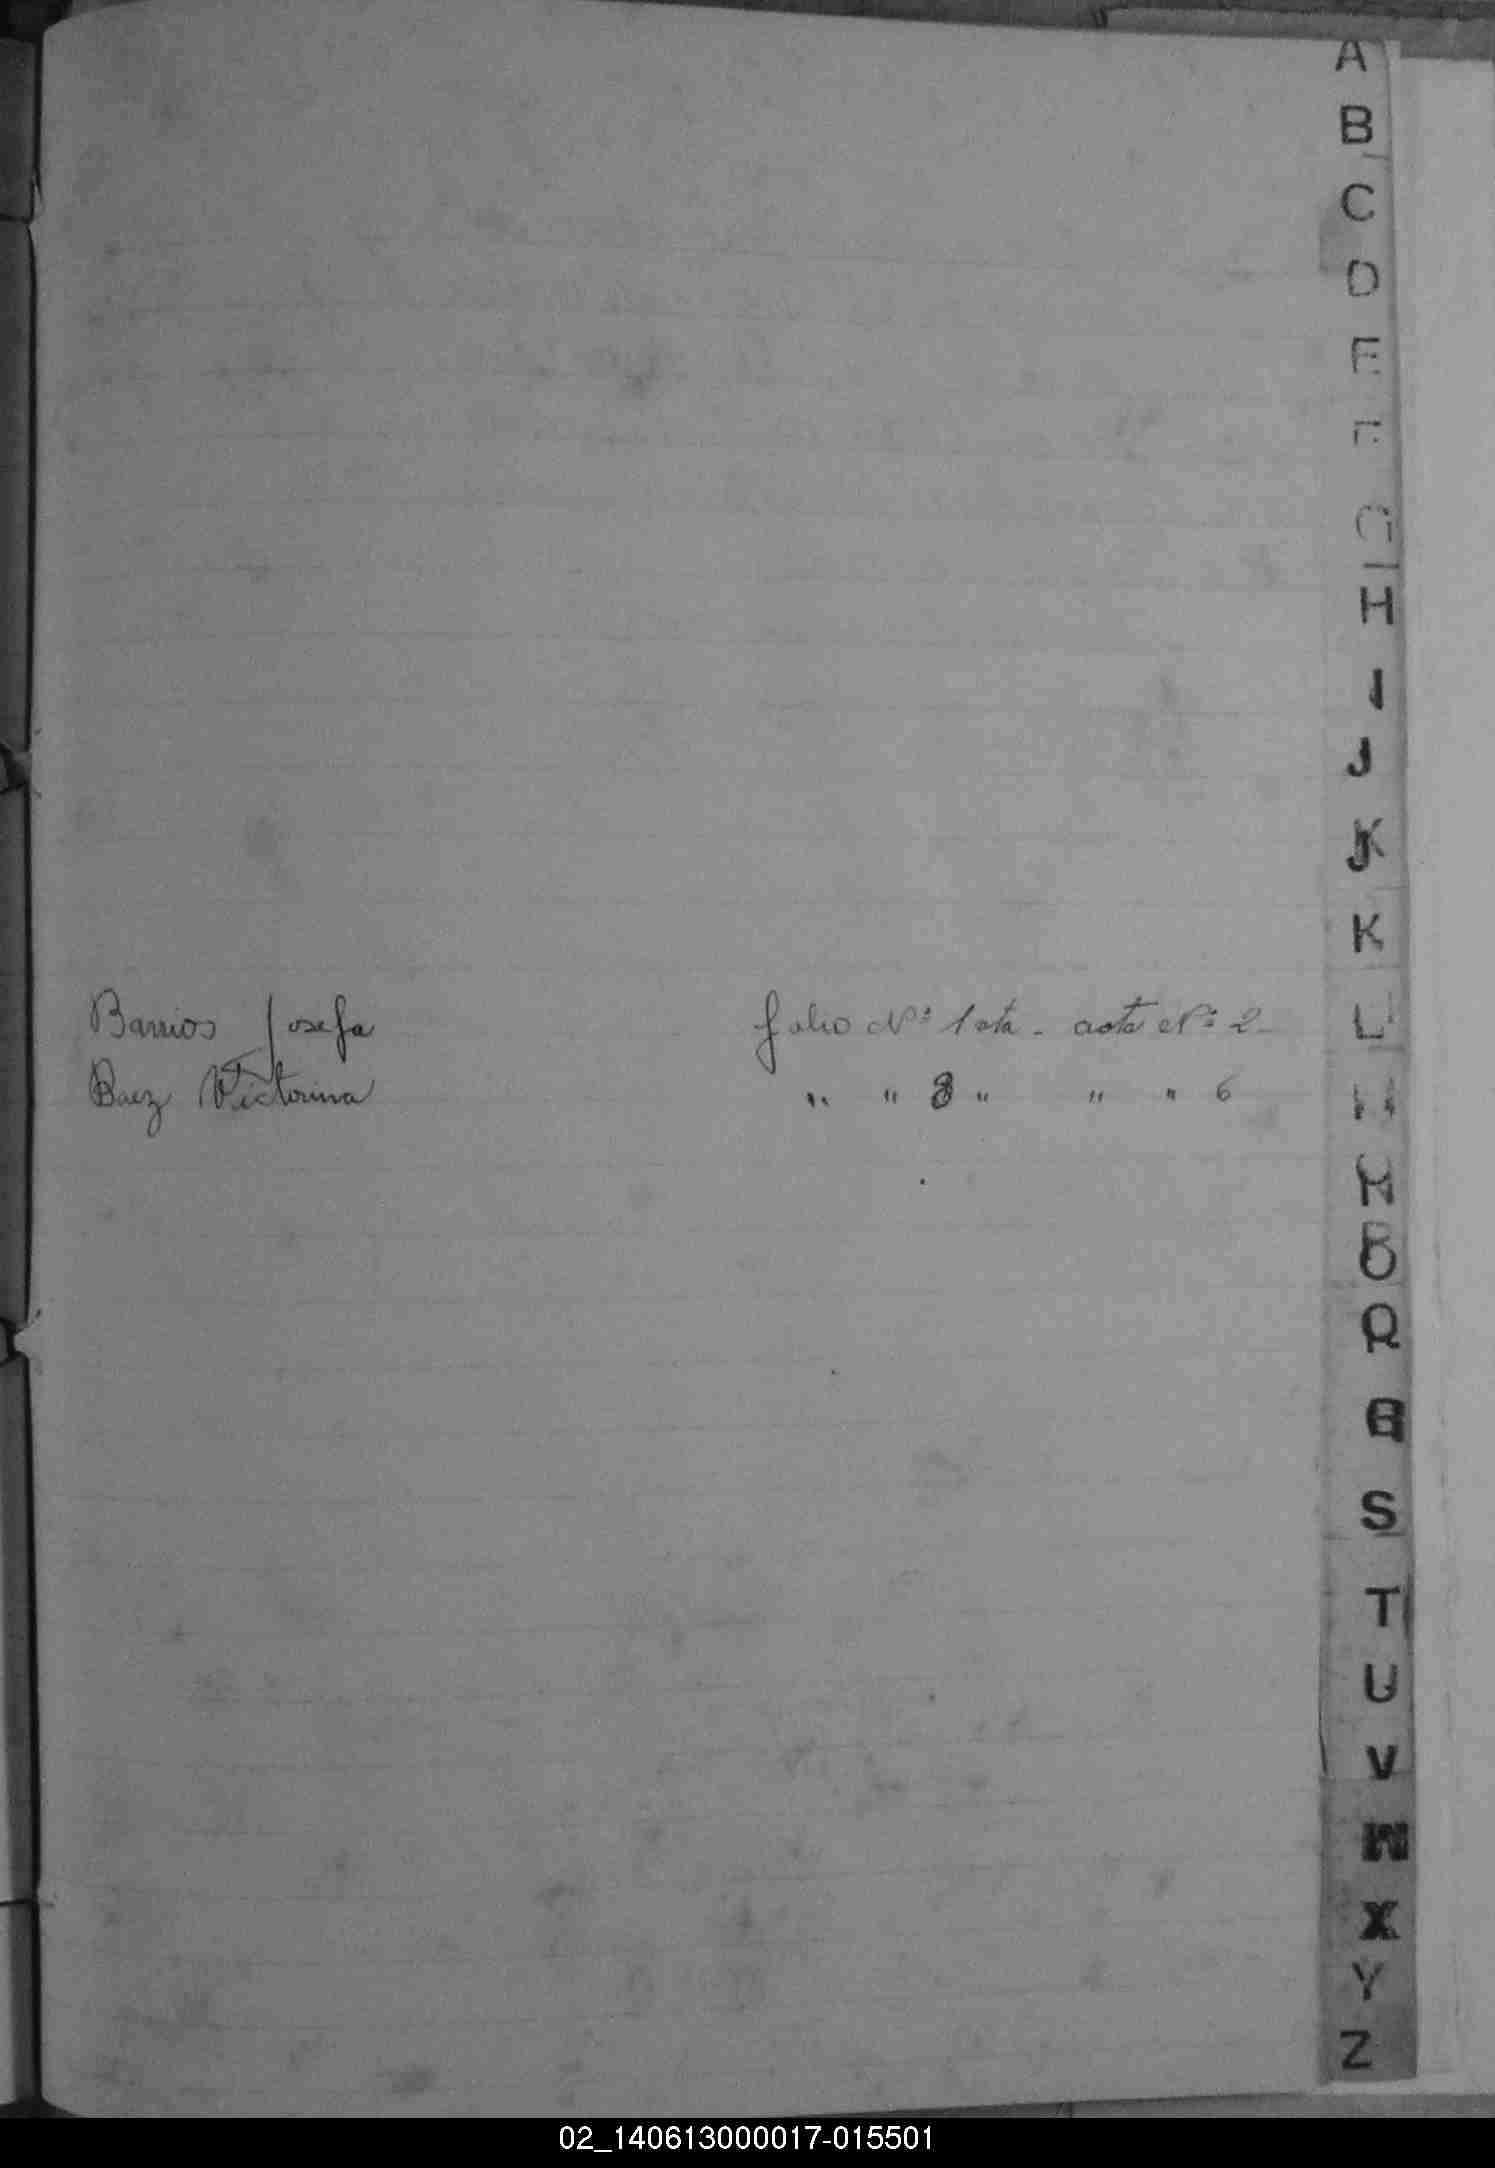 A
B
C
D
E
F
G
H
I
J
K
K
L
Barrios Josefa folio Nº 1 vta. acta Nº 2
Baez Victorina " " 3 " " " 6
O
S
T
U
V
W
X
Y
Z
02_140613000017-015501